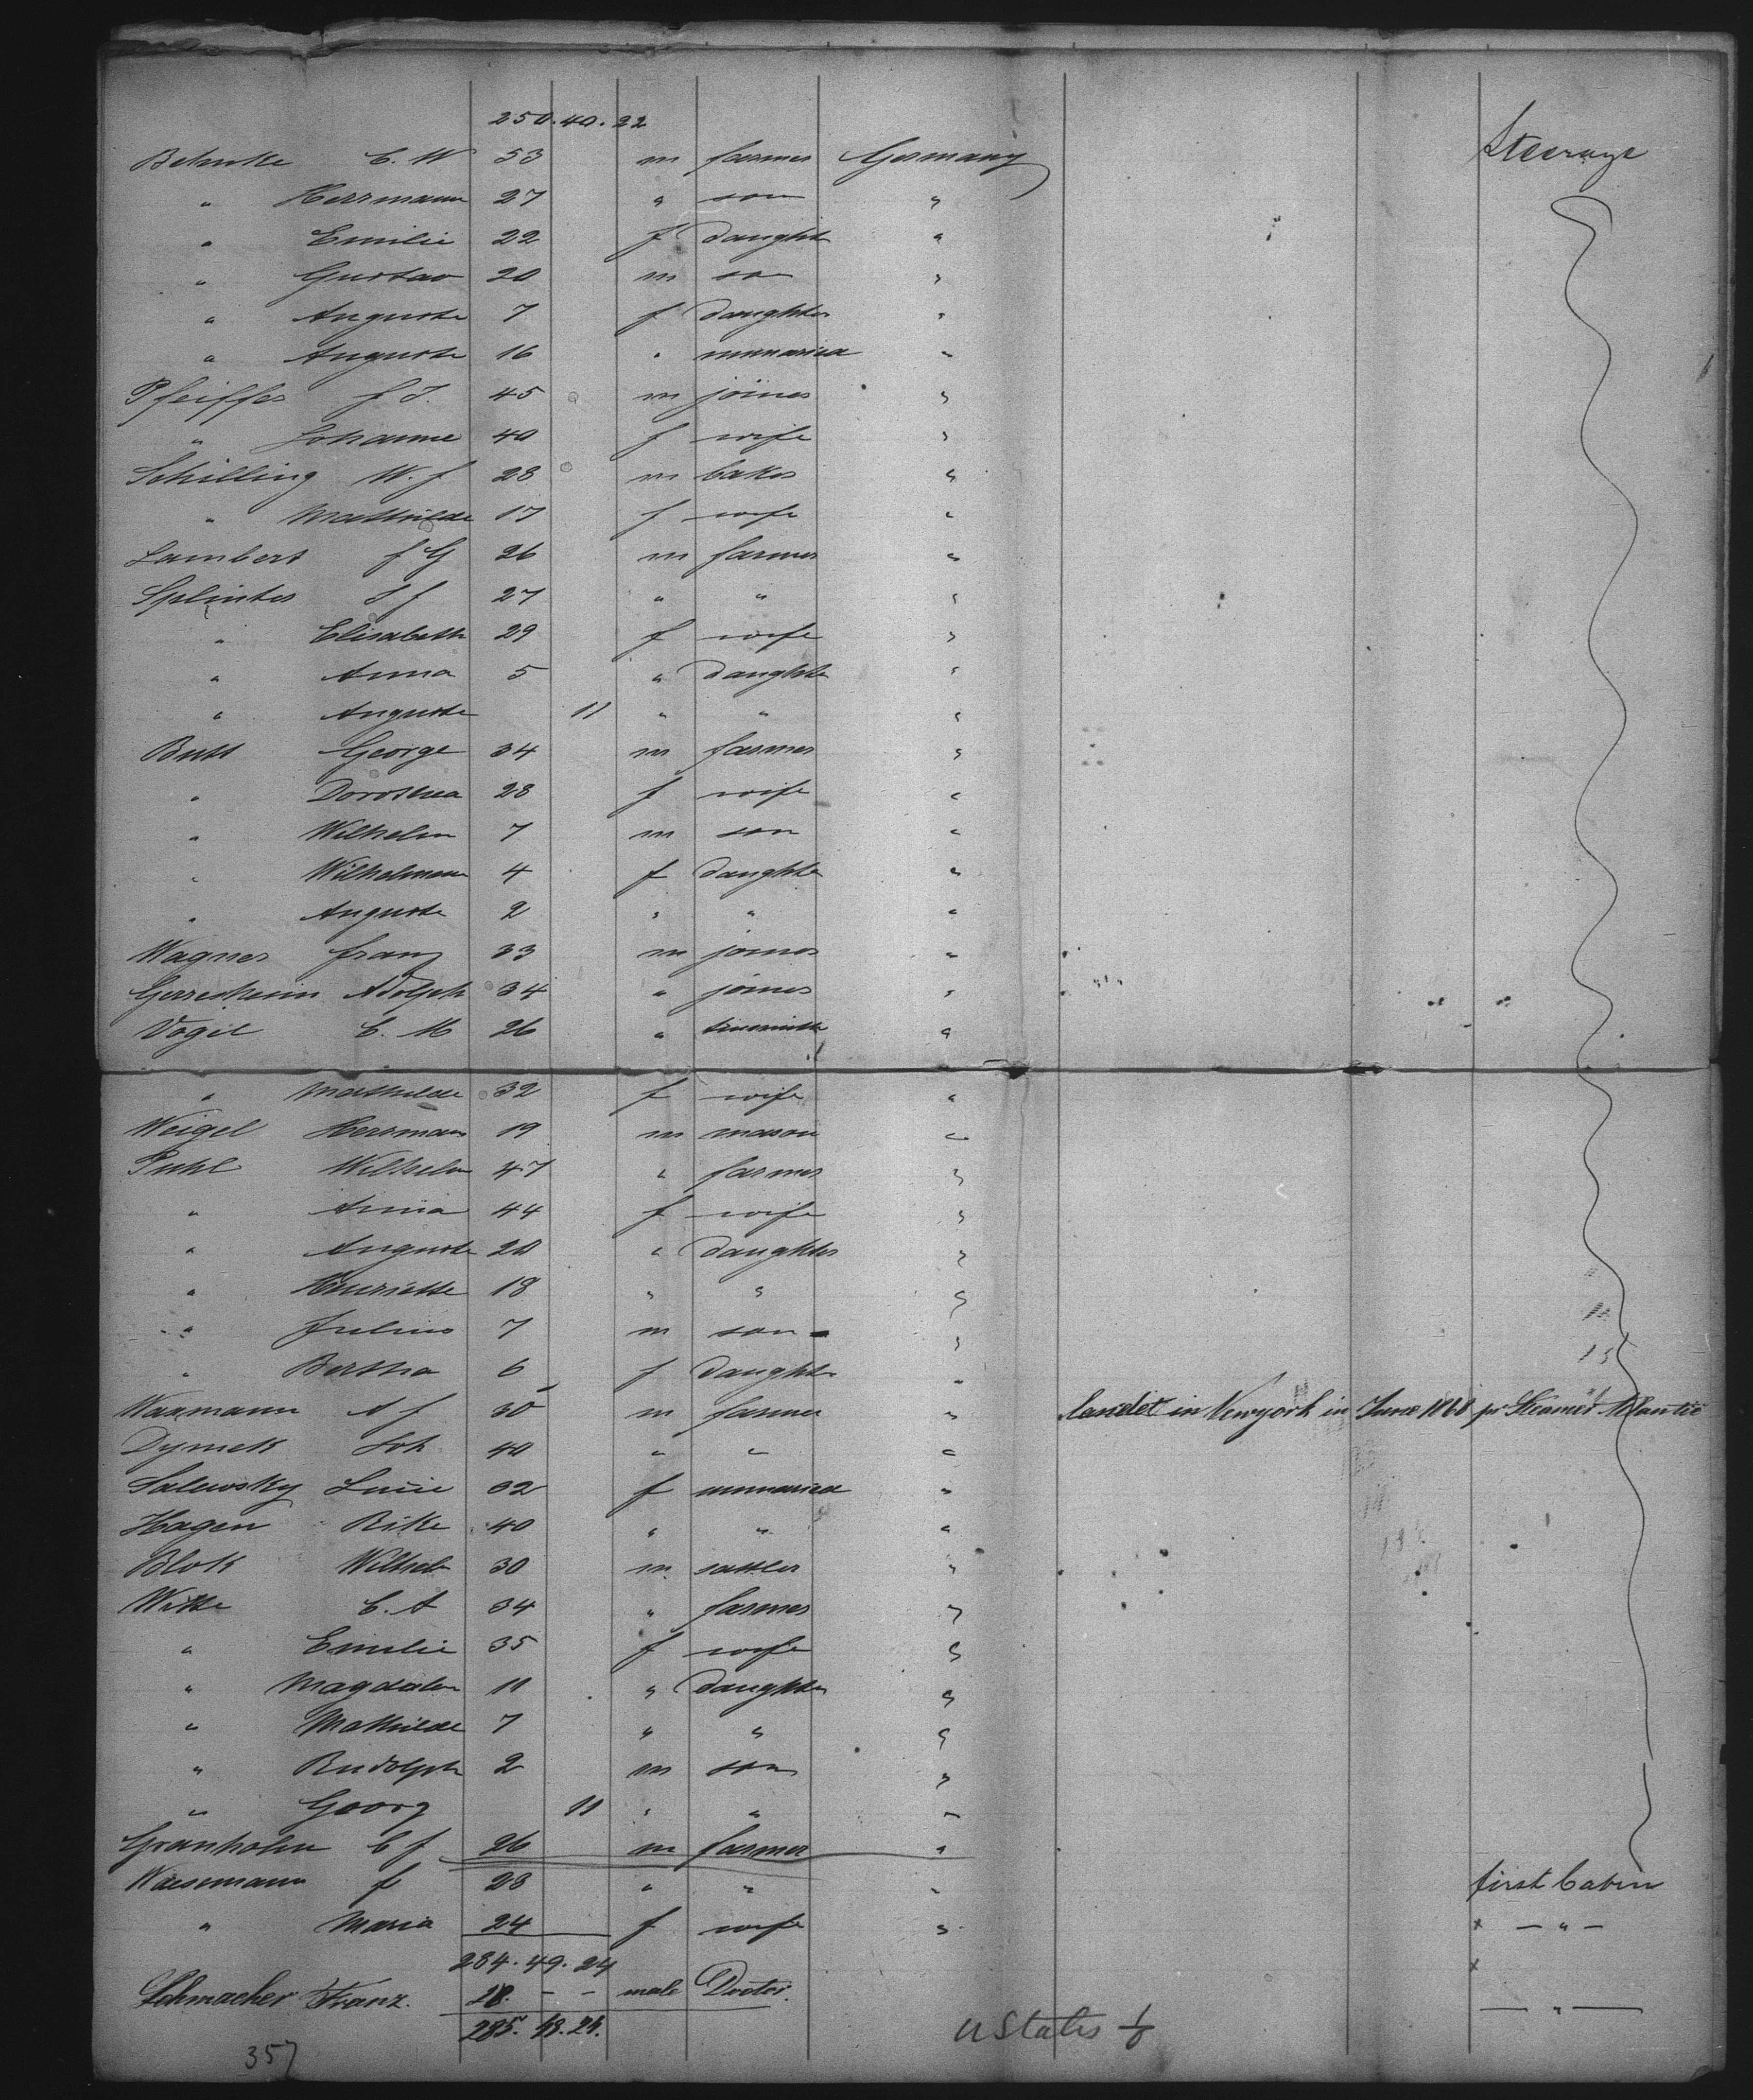 250. 40. 22
Behnke C. W 53 m farmer Germany Steerage
" Herrmann 27 " son "
" Emilie 22 f daughte "
" Gustav 20 m son "
" Auguste 7 f daughter "
" Auguste 16 " unmaried "
Pfeiffer f J. 45 m joiner "
" Johanne 40 f wife "
Schilling W. f 28 m baker "
" Mathilde 17 f wife "
Lambert f G 26 m farmer "
Splinter J f 27 " " "
" Elisabeth 29 f wife "
" Anna 5 " daughte "
" Auguste 11 " " "
Butt George 34 m farmer "
" Dorothea 28 f wife "
" Wilhelm 7 m son "
" 4 f daughte "
" Auguste 2 " " "
Wagner franz 33 m joiner "
Gerresheim Adolph 34 " joiner "
Vogel C. M 26 " tinsmith "
" Mathilde 32 f wife "
Weigel Herrman 19 m mason "
Puhl Wilhelm 47 " farmer "
" Anna 44 f wife "
" Auguste 20 " daughter "
" Henriette 18 " " "
" Julius 7 m son "
" Bertha 6 f daughte "
A f 30 m farmer " landet in Newyork in June 1868 pr Steamer Atlantic
Dymek Joh 40 " " "
Salewsky Lucie 32 f unmaried "
Hagen Rike 40 " " "
Block Wilhelm 30 m sattler "
Witte C. A 34 " farmer "
" Emilie 35 f wife "
" Magdalen 11 " daughter "
" Mathilde 7 " " "
" Rudolph 2 m son "
" Georg 11 " " "
Granholm C f 26 m farmer "
Waesemann f 28 " " " first Cabin
" Maria 24 f wife " x — " —
284. 49. 24 x
Schmacher Franz. 28. - - male Doctor. — " —
285. 49. 24.
U States 1/8
357